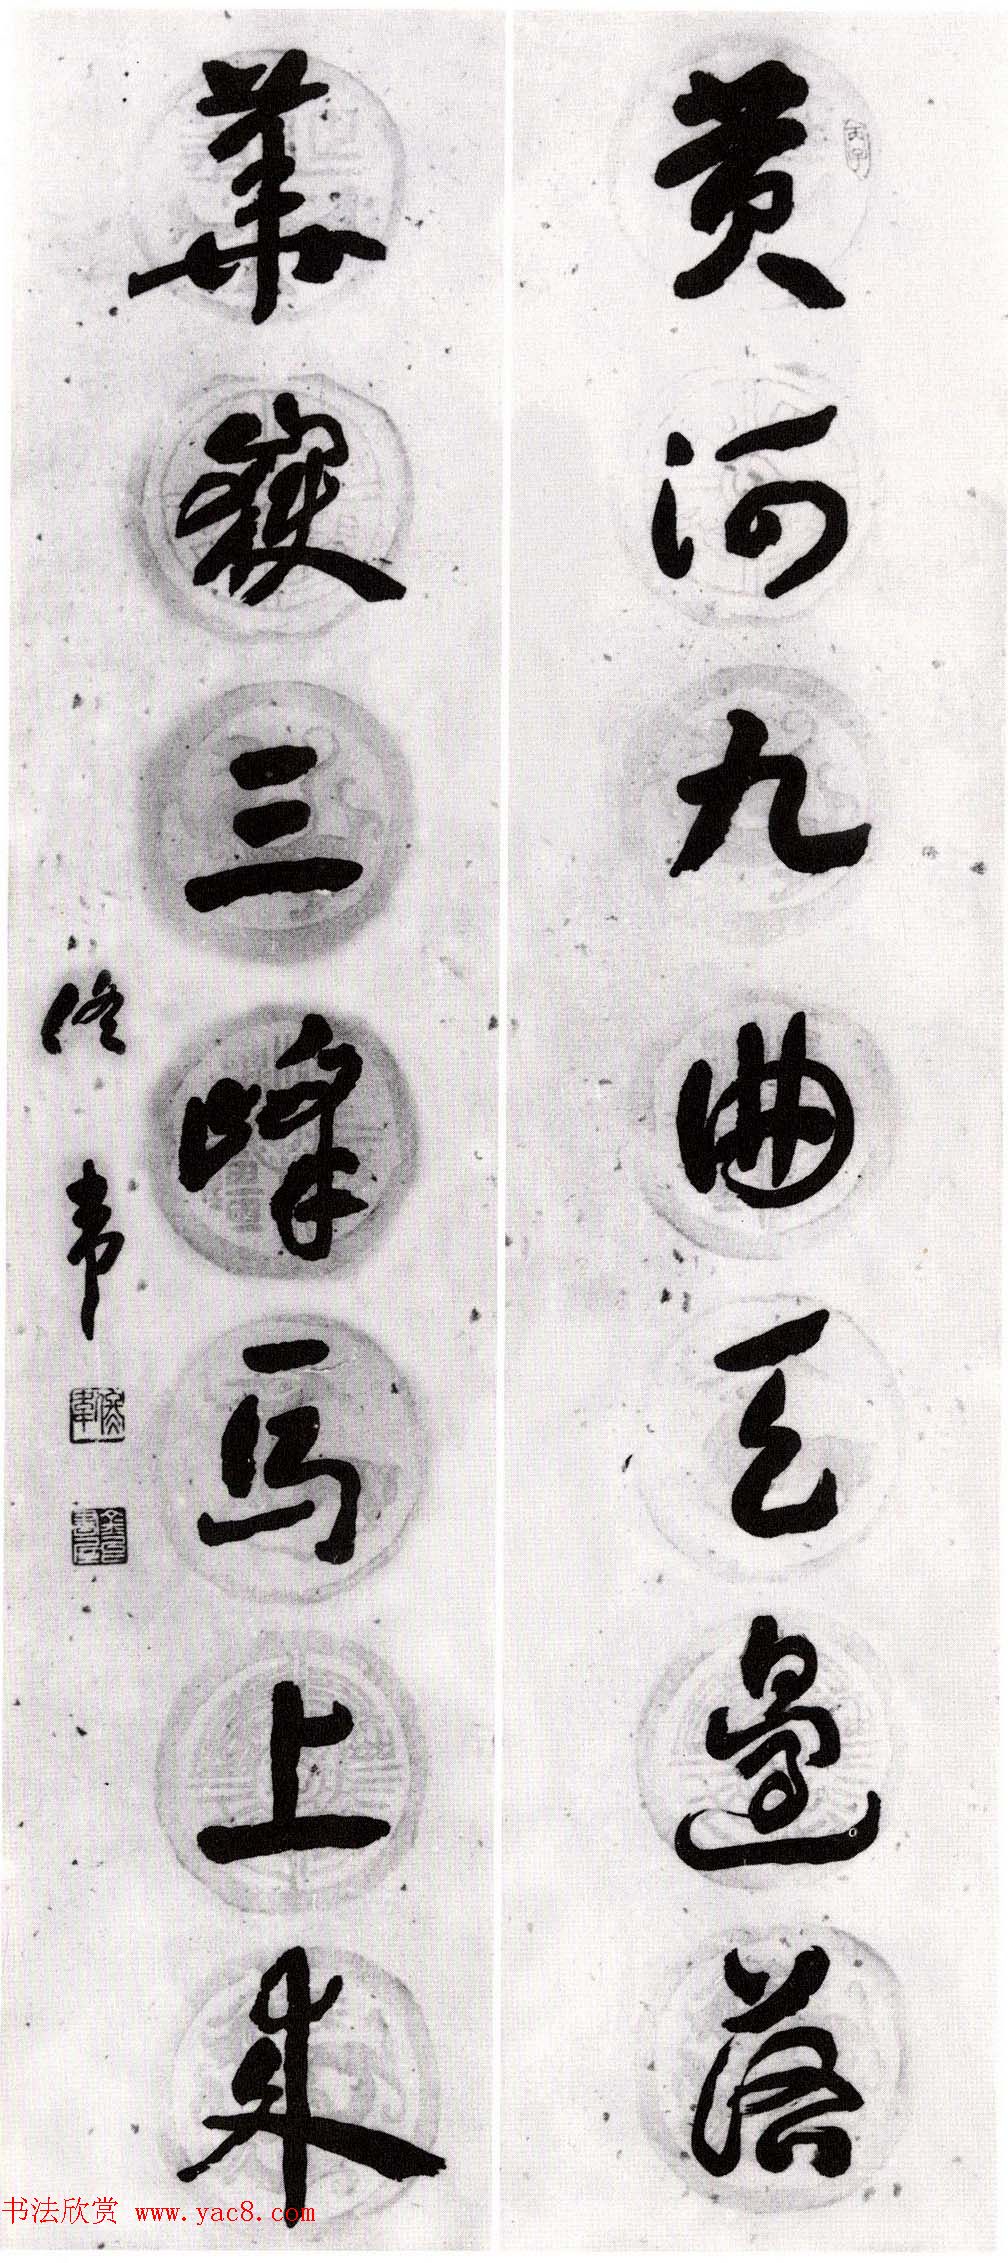 黄河九曲天邊落
華嶽三峰馬上来
佟韋
书法欣赏 www.yac8.com